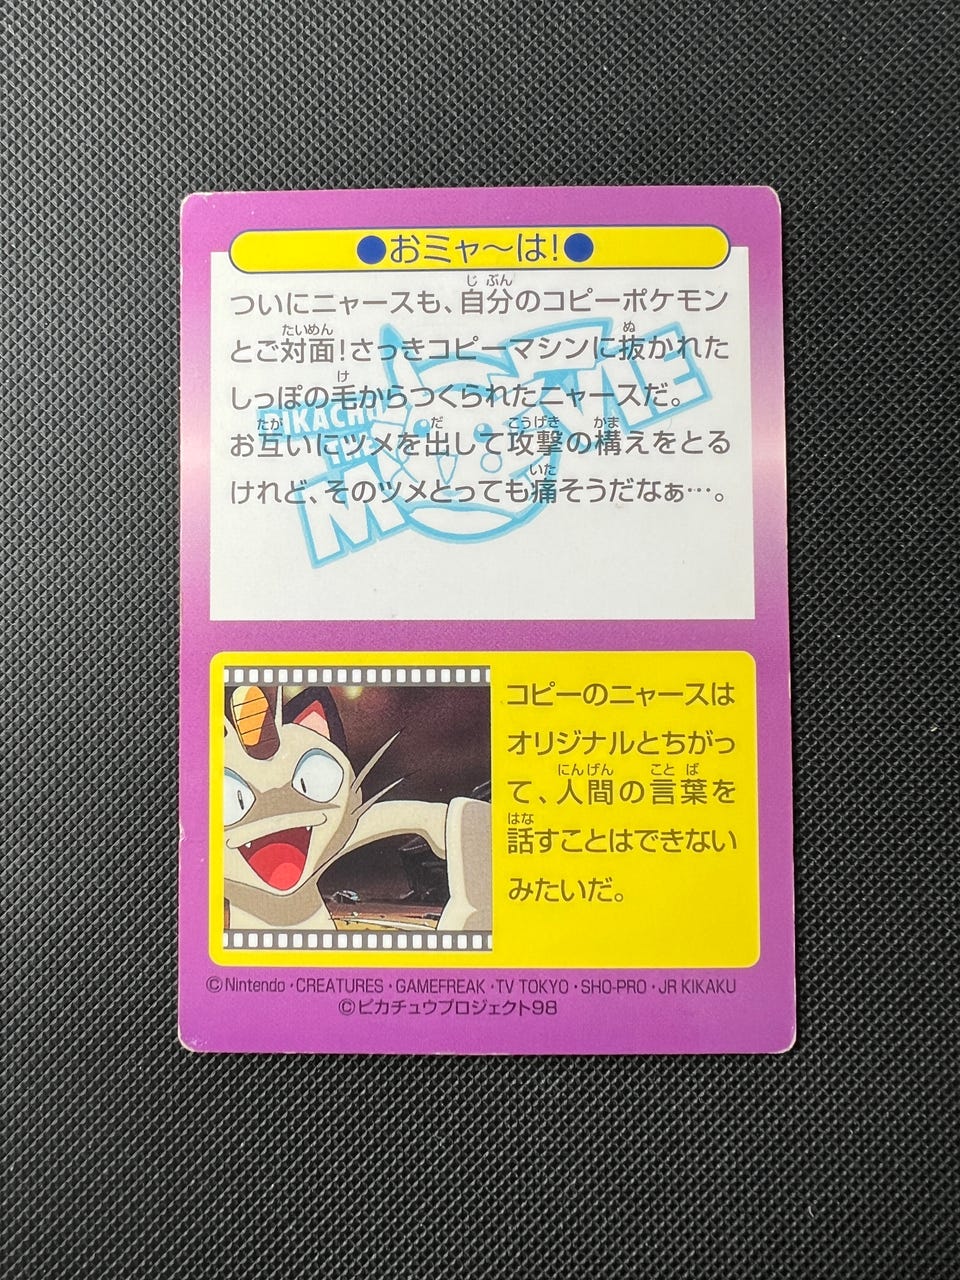 ●おミャ～は!●
ついにニャースも、自分のコピーポケモン
とご対面!さっきコピーマシンに抜かれた
しっぽの毛からつくられたニャースだ。
お互いにツメを出して攻撃の構えをとる
けれど、そのツメとっても痛そうだなぁ…。
PIKACHU
THE
MOVIE
コピーのニャースは
オリジナルとちがっ
て、人間の言葉を
話すことはできない
みたいだ。
©Nintendo・CREATURES・GAMEFREAK・TV TOKYO・SHO-PRO・JR KIKAKU
©ピカチュウプロジェクト98